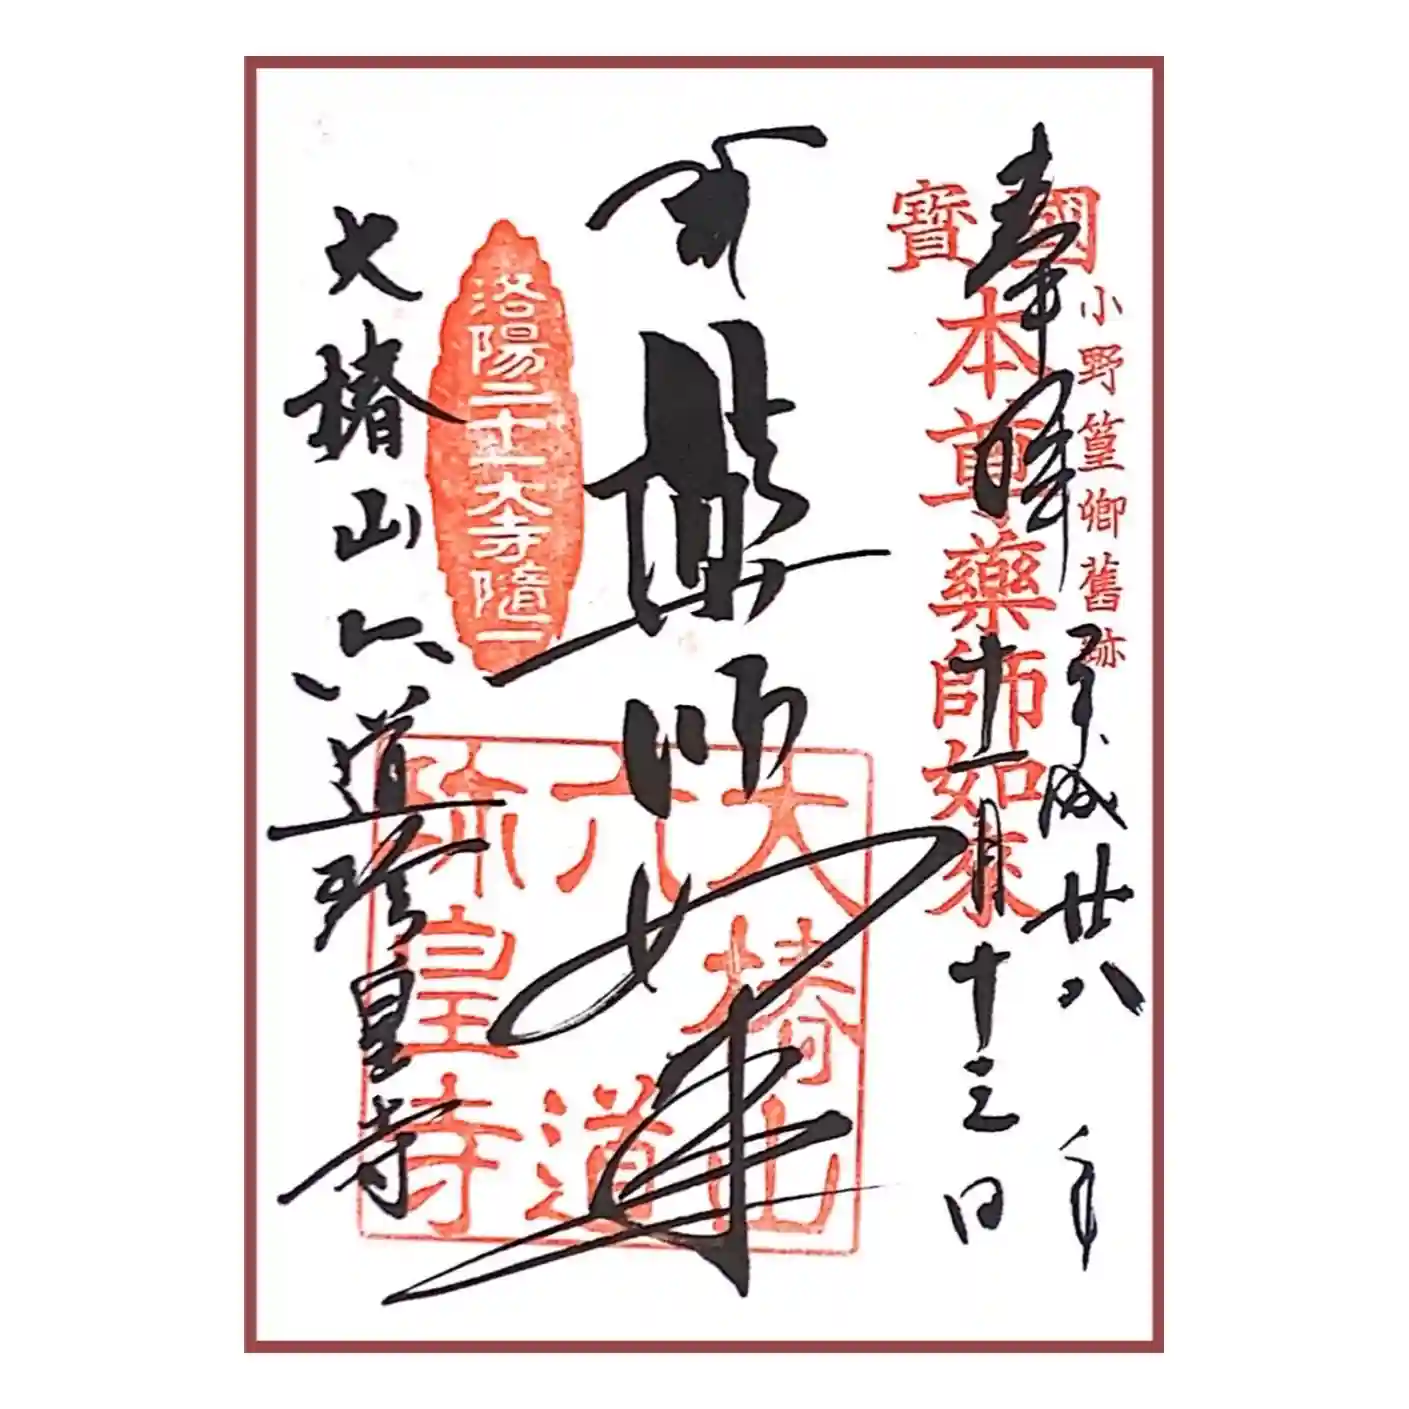 奉拝
平成廿八年
十一月十三日
小野篁卿舊跡
國寶
本尊藥師如來
藥師如来
洛陽二十一大寺隨一
大椿山
六道
珍皇寺
大椿山六道珍皇寺